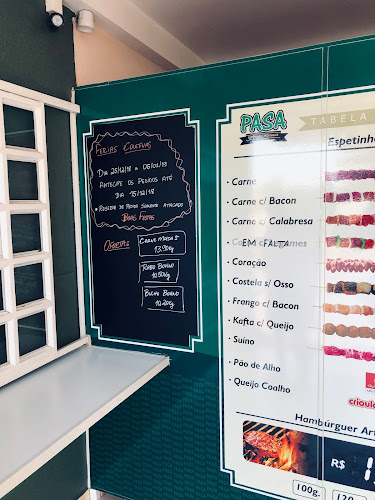 FÉRIAS COLETIVAS
DIA 25/12/18 a 05/01/19
ANTECIPE OS PEDIDOS ATÉ
DIA 15/12/18
BOAS FESTAS
OFERTAS:
CARNE MOÍDA 5
RABO BOVINO
BUCHO BOVINO
PASA
TABELA
Espetinho
• Carne
• Carne c/ Bacon
• Carne c/ Calabresa
EM FALTA
• Coração
• Costela s/ Osso
• Frango c/ Bacon
• Kafta c/ Queijo
• Suíno
• Pão de Alho
• Queijo Coalho
crioulo
Hambúrguer Art
R$
100g.
120